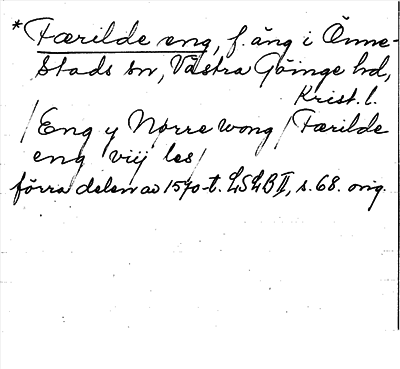 *Færilde eng, f. äng i Önne-
stads sn, Västra Göinge hd,
Krist. l.
/Eng y Nørre wong/ Færilde
eng viij les/
förra delen av 1570-t. LSLB II, s. 68. orig.